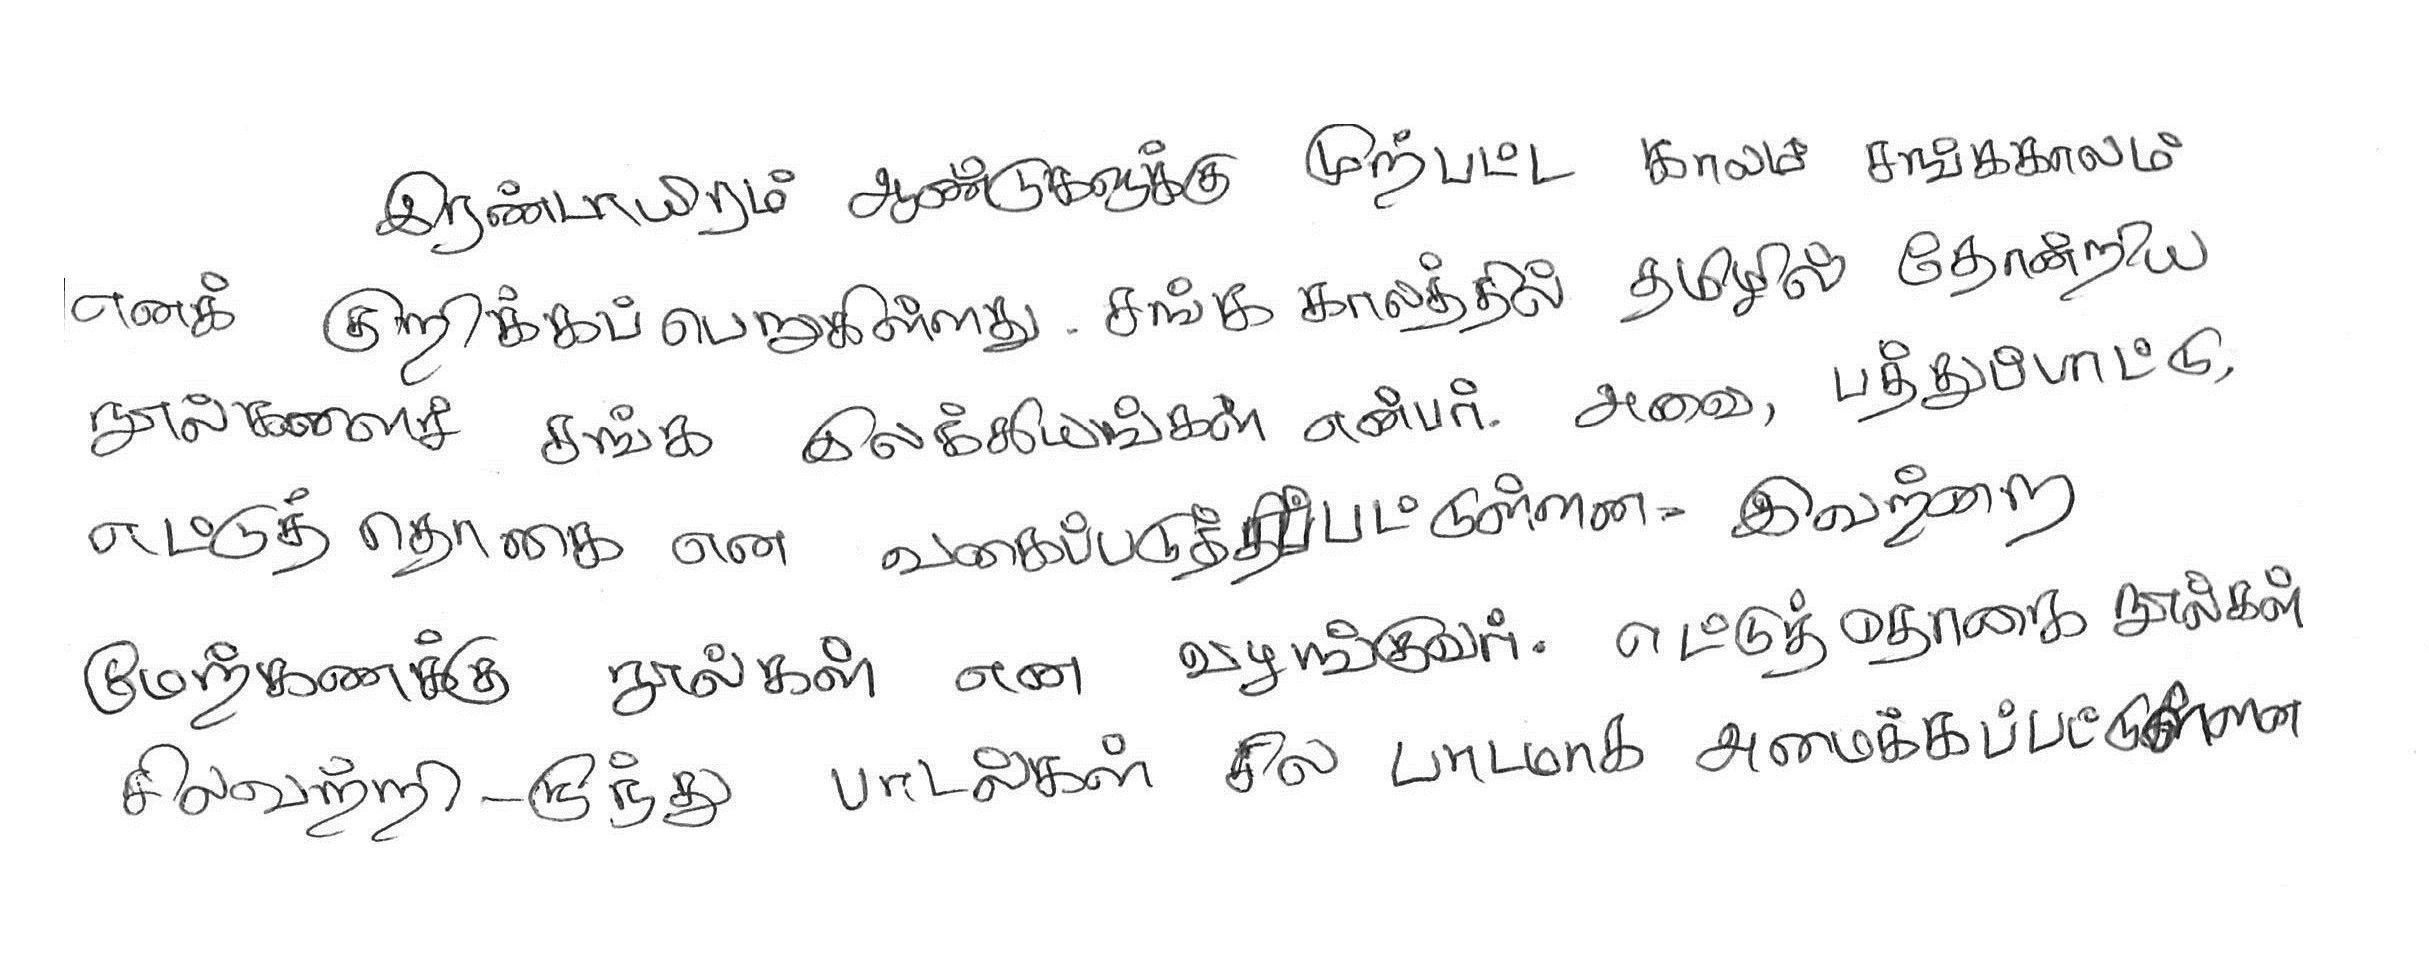 இரண்டாயிரம் ஆண்டுகளுக்கு முற்பட்ட காலம் சங்ககாலம்
எனக் குறிக்கப் பெறுகின்றது. சங்க காலத்தில் தமிழில் தோன்றிய
நூல்களைச் சங்க இலக்கியங்கள் என்பர். அவை, பத்துப்பாட்டு,
எட்டுத் தொகை என வகைப்படுத்தப்பட்டுள்ளன. இவற்றை
மேற்கணக்கு நூல்கள் என வழங்குவர். எட்டுத் தொகை நூல்கள்
சிலவற்றி-ருந்து பாடல்கள் சில பாடமாக அமைக்கப்பட்டுள்ளன